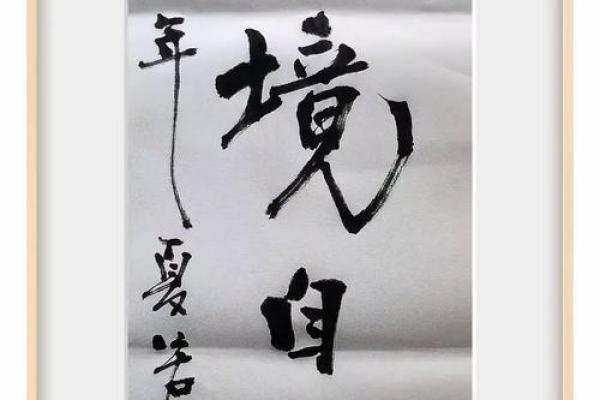 境自
年夏